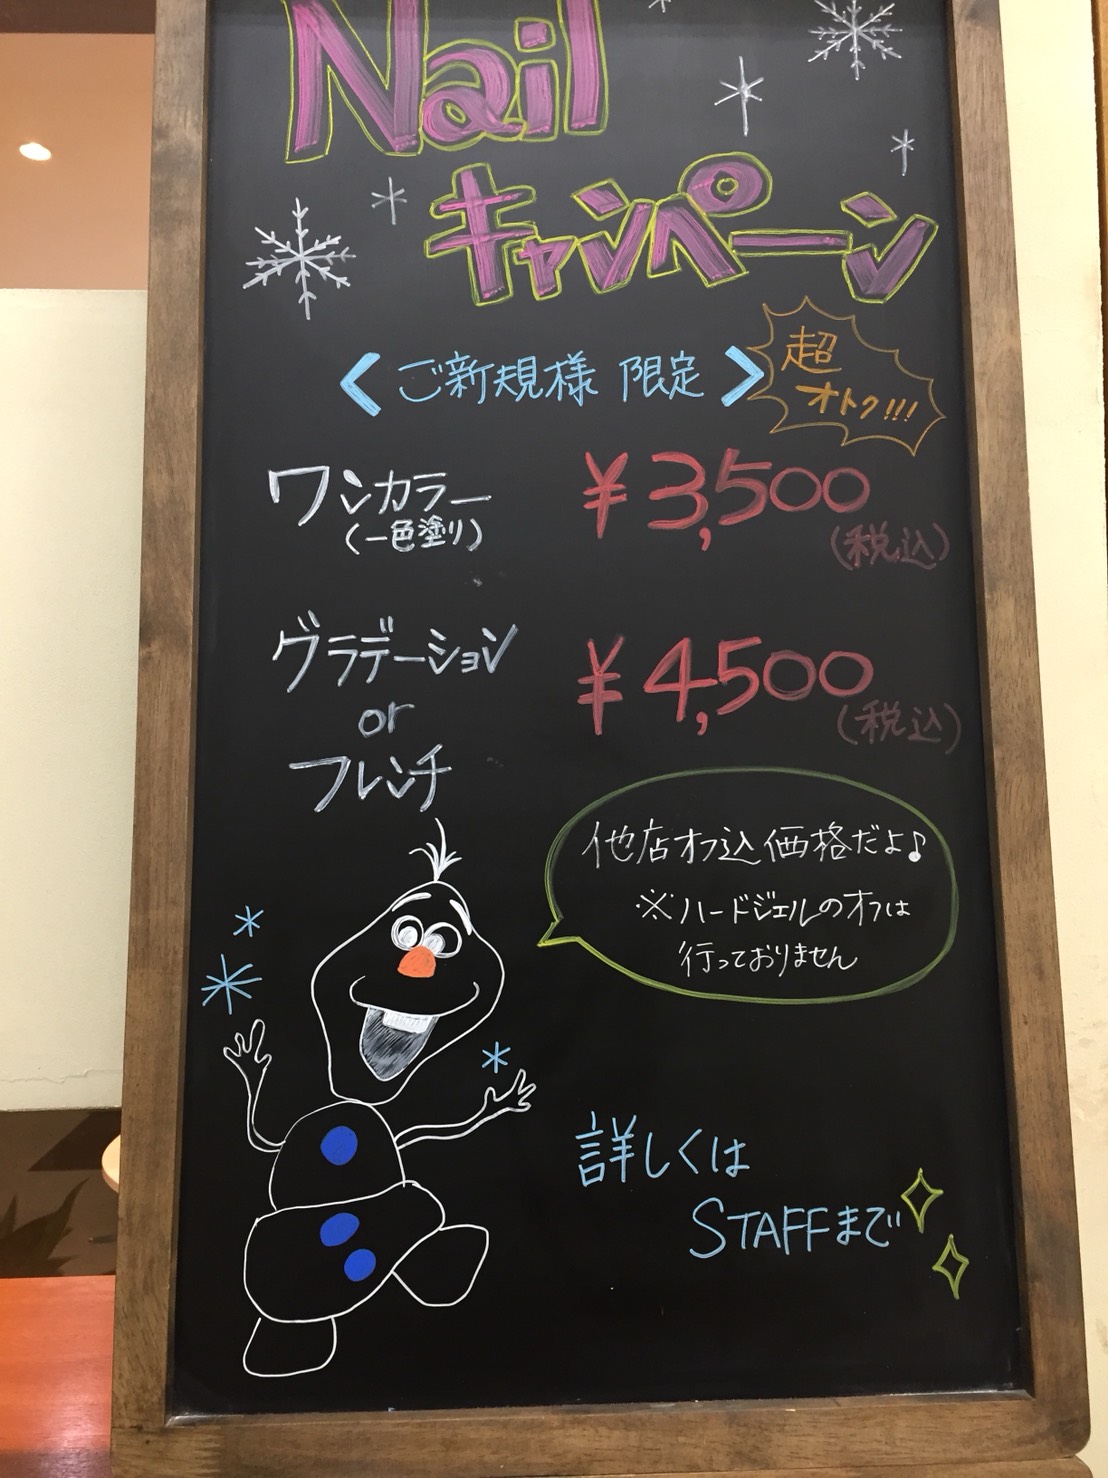 Nail
キャンペーン
く ご新規様 限定 >
超
オトク!!!
ワンカラー
(一色塗り)
¥3,500
(税込)
グラデーション
or
フレンチ
¥4,500
(税込)
他店オフ込価格だよ♪
※ハードジェルのオフは
行っておりません
詳しくは
STAFFまで